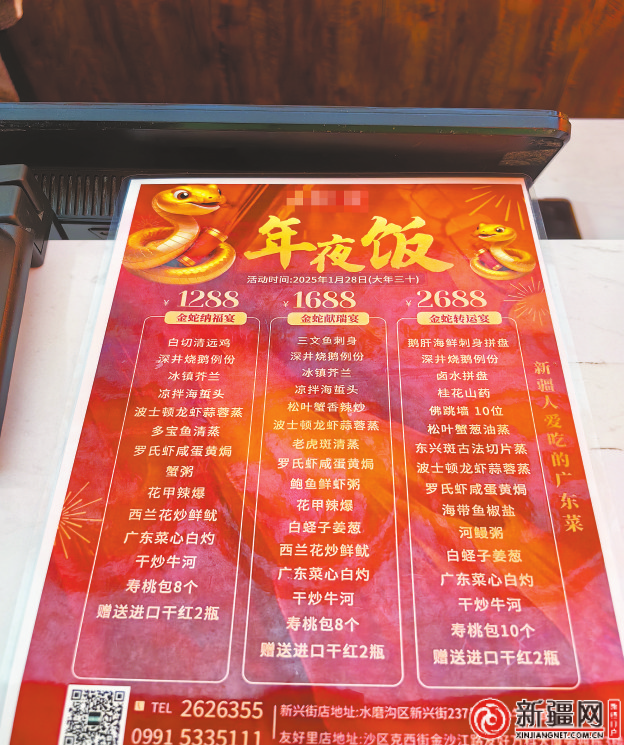 年夜饭
活动时间:2025年1月28日(大年三十)
¥1288
金蛇纳福宴
白切清远鸡
深井烧鹅例份
冰镇芥兰
凉拌海蜇头
波士顿龙虾蒜蓉蒸
多宝鱼清蒸
罗氏虾咸蛋黄焗
蟹粥
花甲辣爆
西兰花炒鲜鱿
广东菜心白灼
干炒牛河
寿桃包8个
赠送进口干红2瓶
¥1688
金蛇献瑞宴
三文鱼刺身
深井烧鹅例份
冰镇芥兰
凉拌海蜇头
松叶蟹香辣炒
波士顿龙虾蒜蓉蒸
老虎斑清蒸
罗氏虾咸蛋黄焗
鲍鱼鲜虾粥
花甲辣爆
白蛏子姜葱
西兰花炒鲜鱿
广东菜心白灼
干炒牛河
寿桃包8个
赠送进口干红2瓶
¥2688
金蛇转运宴
鹅肝海鲜刺身拼盘
深井烧鹅例份
卤水拼盘
桂花山药
佛跳墙 10位
松叶蟹葱油蒸
东兴斑古法切片蒸
波士顿龙虾蒜蓉蒸
罗氏虾咸蛋黄焗
海带鱼椒盐
河鳗粥
白蛏子姜葱
广东菜心白灼
干炒牛河
寿桃包10个
赠送进口干红2瓶
新疆人爱吃的广东菜
TEL 2626355
0991 5335111
新兴街店地址:水磨沟区新兴街237
友好里店地址:沙区克西街金沙江路
新疆网
XINJIANGNET.COM.CN